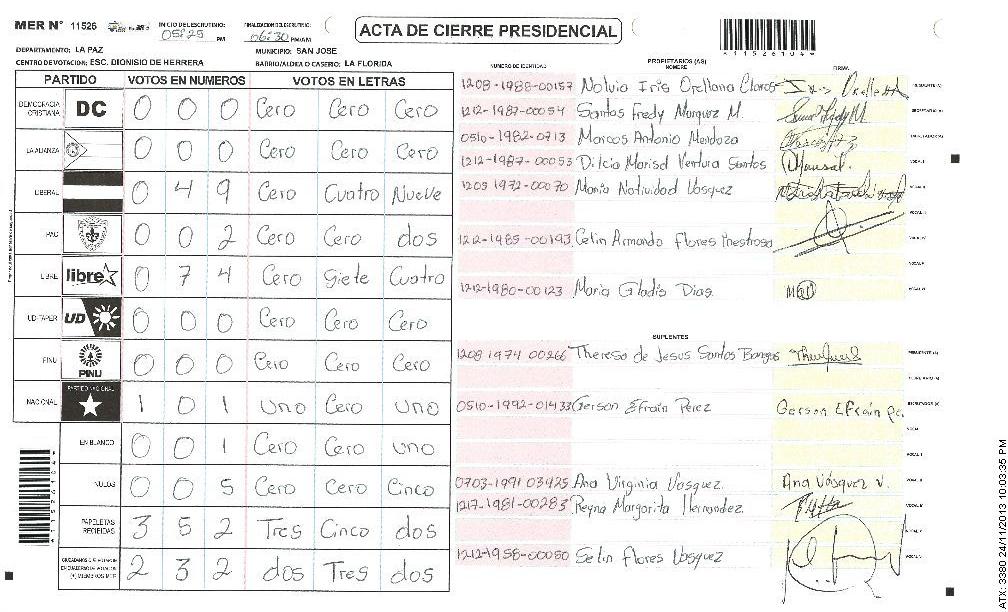 MER N° 11526 INICIO DEL ESCRUTINIO: 05:25 PM FINALIZACION DEL ESCRUTINIO: 06:30 PM/AM ACTA DE CIERRE PRESIDENCIAL
*11526104*
DEPARTAMENTO: LA PAZ MUNICIPIO: SAN JOSE
CENTRO DE VOTACION: ESC. DIONISIO DE HERRERA BARRIO/ALDEA O CASERIO: LA FLORIDA
PROPIETARIOS (AS)
NUMERO DE IDENTIDAD NOMBRE FIRMA
PARTIDO VOTOS EN NUMEROS VOTOS EN LETRAS
DEMOCRACIA CRISTIANA DC 0 0 0 Cero Cero Cero
LA ALIANZA 0 0 0 Cero Cero Cero
LIBERAL 0 4 9 Cero Cuatro Nueve
PAC 0 0 2 Cero Cero dos
LIBRE libre 0 7 4 Cero Siete Cuatro
UD-FAPER UD 0 0 0 Cero Cero Cero
PINU PINU 0 0 0 Cero Cero Cero
NACIONAL PARTIDO NACIONAL 1 0 1 uno Cero uno
EN BLANCO 0 0 1 Cero Cero uno
NULOS 0 0 5 Cero Cero Cinco
PAPELETAS RECIBIDAS 3 5 2 Tres Cinco dos
2 3 2 dos Tres dos
1208-1988-00157 Nolvia Iris Orellana Claros
1212-1987-00054 Santos Fredy Marquez M.
0510-1982-0713 Marcos Antonio Mendoza
1212-1987-00053 Dilcia Marisol Ventura Santos VOCAL I
1205 1972-00070 Maria Natividad Vasquez
1212-1985-00193 Celin Armando Flores Inestroza
1212-1980-00123 Maria Gladis Dias.
SUPLENTES
1208 1974 00266 Theresa de Jesus Santos PRESIDENTE (A)
0510-1992-01433 Gerson Efrain Perez Gerson Efrain Pe.
0703-1991 03925 Ana Virginia Vasquez. Ana Vasquez V.
1217-1981-00283 Reyna Margarita Hernandez.
1212-1958-00050 Selin Flores Vasquez
*11526104*
ATX: 3380 24/11/2013 10:03:35 PM